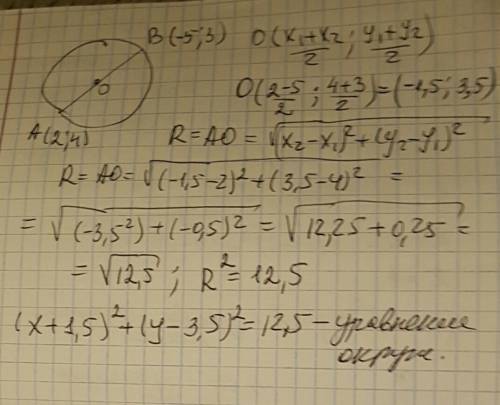 B(-5;3) O(x₁+x₂/2; y₁+y₂/2)
O(2-5/2; 4+3/2)=(-1,5; 3,5)
O
A(2;4) R = AO = √(x₂-x₁)²+(y₂-y₁)²
R = AO = √(-1,5-2)²+(3,5-4)² =
= √(-3,5²)+(-0,5)² = √12,25+0,25 =
= √12,5 ; R² = 12,5
(x+1,5)²+(y-3,5)²=12,5 - уравнение
окруж.